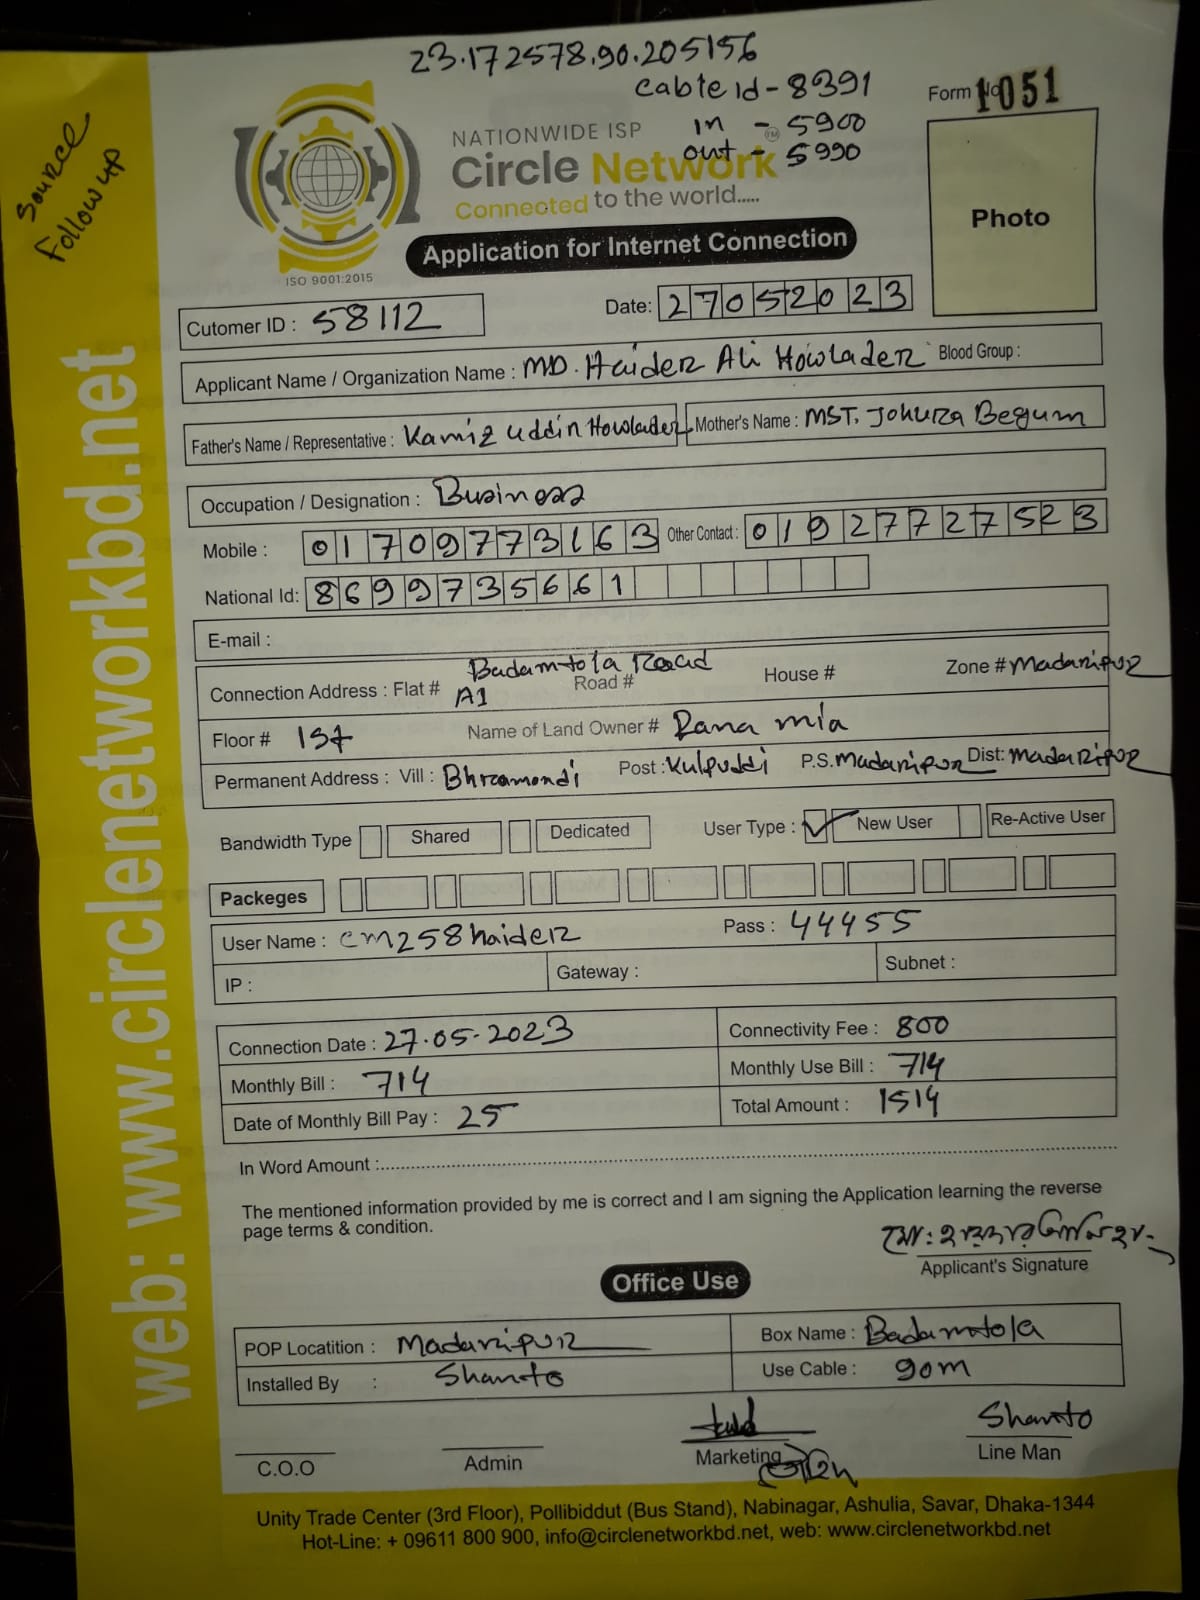 23.172578.90.205156
Cable id - 8391
in - 5900
out - 5990
Form No 1051
Source
Follow up
NATIONWIDE ISP
Circle Network
TM
Connected to the world.....
ISO 9001:2015
Application for Internet Connection
Photo
Cutomer ID : 58112
Date: 27052023
Applicant Name / Organization Name : MD. Haider Ali Howlader Blood Group :
Father's Name / Representative : Kamiz uddin Howlader Mother's Name : MST. Johura Begum
Occupation / Designation : Business
Mobile : 01709773163 Other Contact : 01927727523
National Id: 8699735661
E-mail :
Badamtola Road
Connection Address : Flat # A1 Road # House # Zone # Madaripur
Floor # 1st Name of Land Owner # Rana mia
Permanent Address : Vill : Post : Kulpuddi P.S. Madaripur Dist: Madaripur
Bandwidth Type Shared Dedicated User Type : ✓ New User Re-Active User
Packeges
User Name : cm258haider Pass : 44455
IP : Gateway : Subnet :
Connection Date : 27.05.2023 Connectivity Fee : 800
Monthly Bill : 714 Monthly Use Bill : 714
Date of Monthly Bill Pay : 25 Total Amount : 1514
In Word Amount :
The mentioned information provided by me is correct and I am signing the Application learning the reverse
page terms & condition.
Applicant's Signature
Office Use
POP Locatition : Madaripur Box Name : Badamtola
Installed By : Shanto Use Cable : 90m
Shanto
C.O.O Admin Marketing Line Man
Unity Trade Center (3rd Floor), Pollibiddut (Bus Stand), Nabinagar, Ashulia, Savar, Dhaka-1344
Hot-Line: + 09611 800 900, info@circlenetworkbd.net, web: www.circlenetworkbd.net
web: www.circlenetworkbd.net